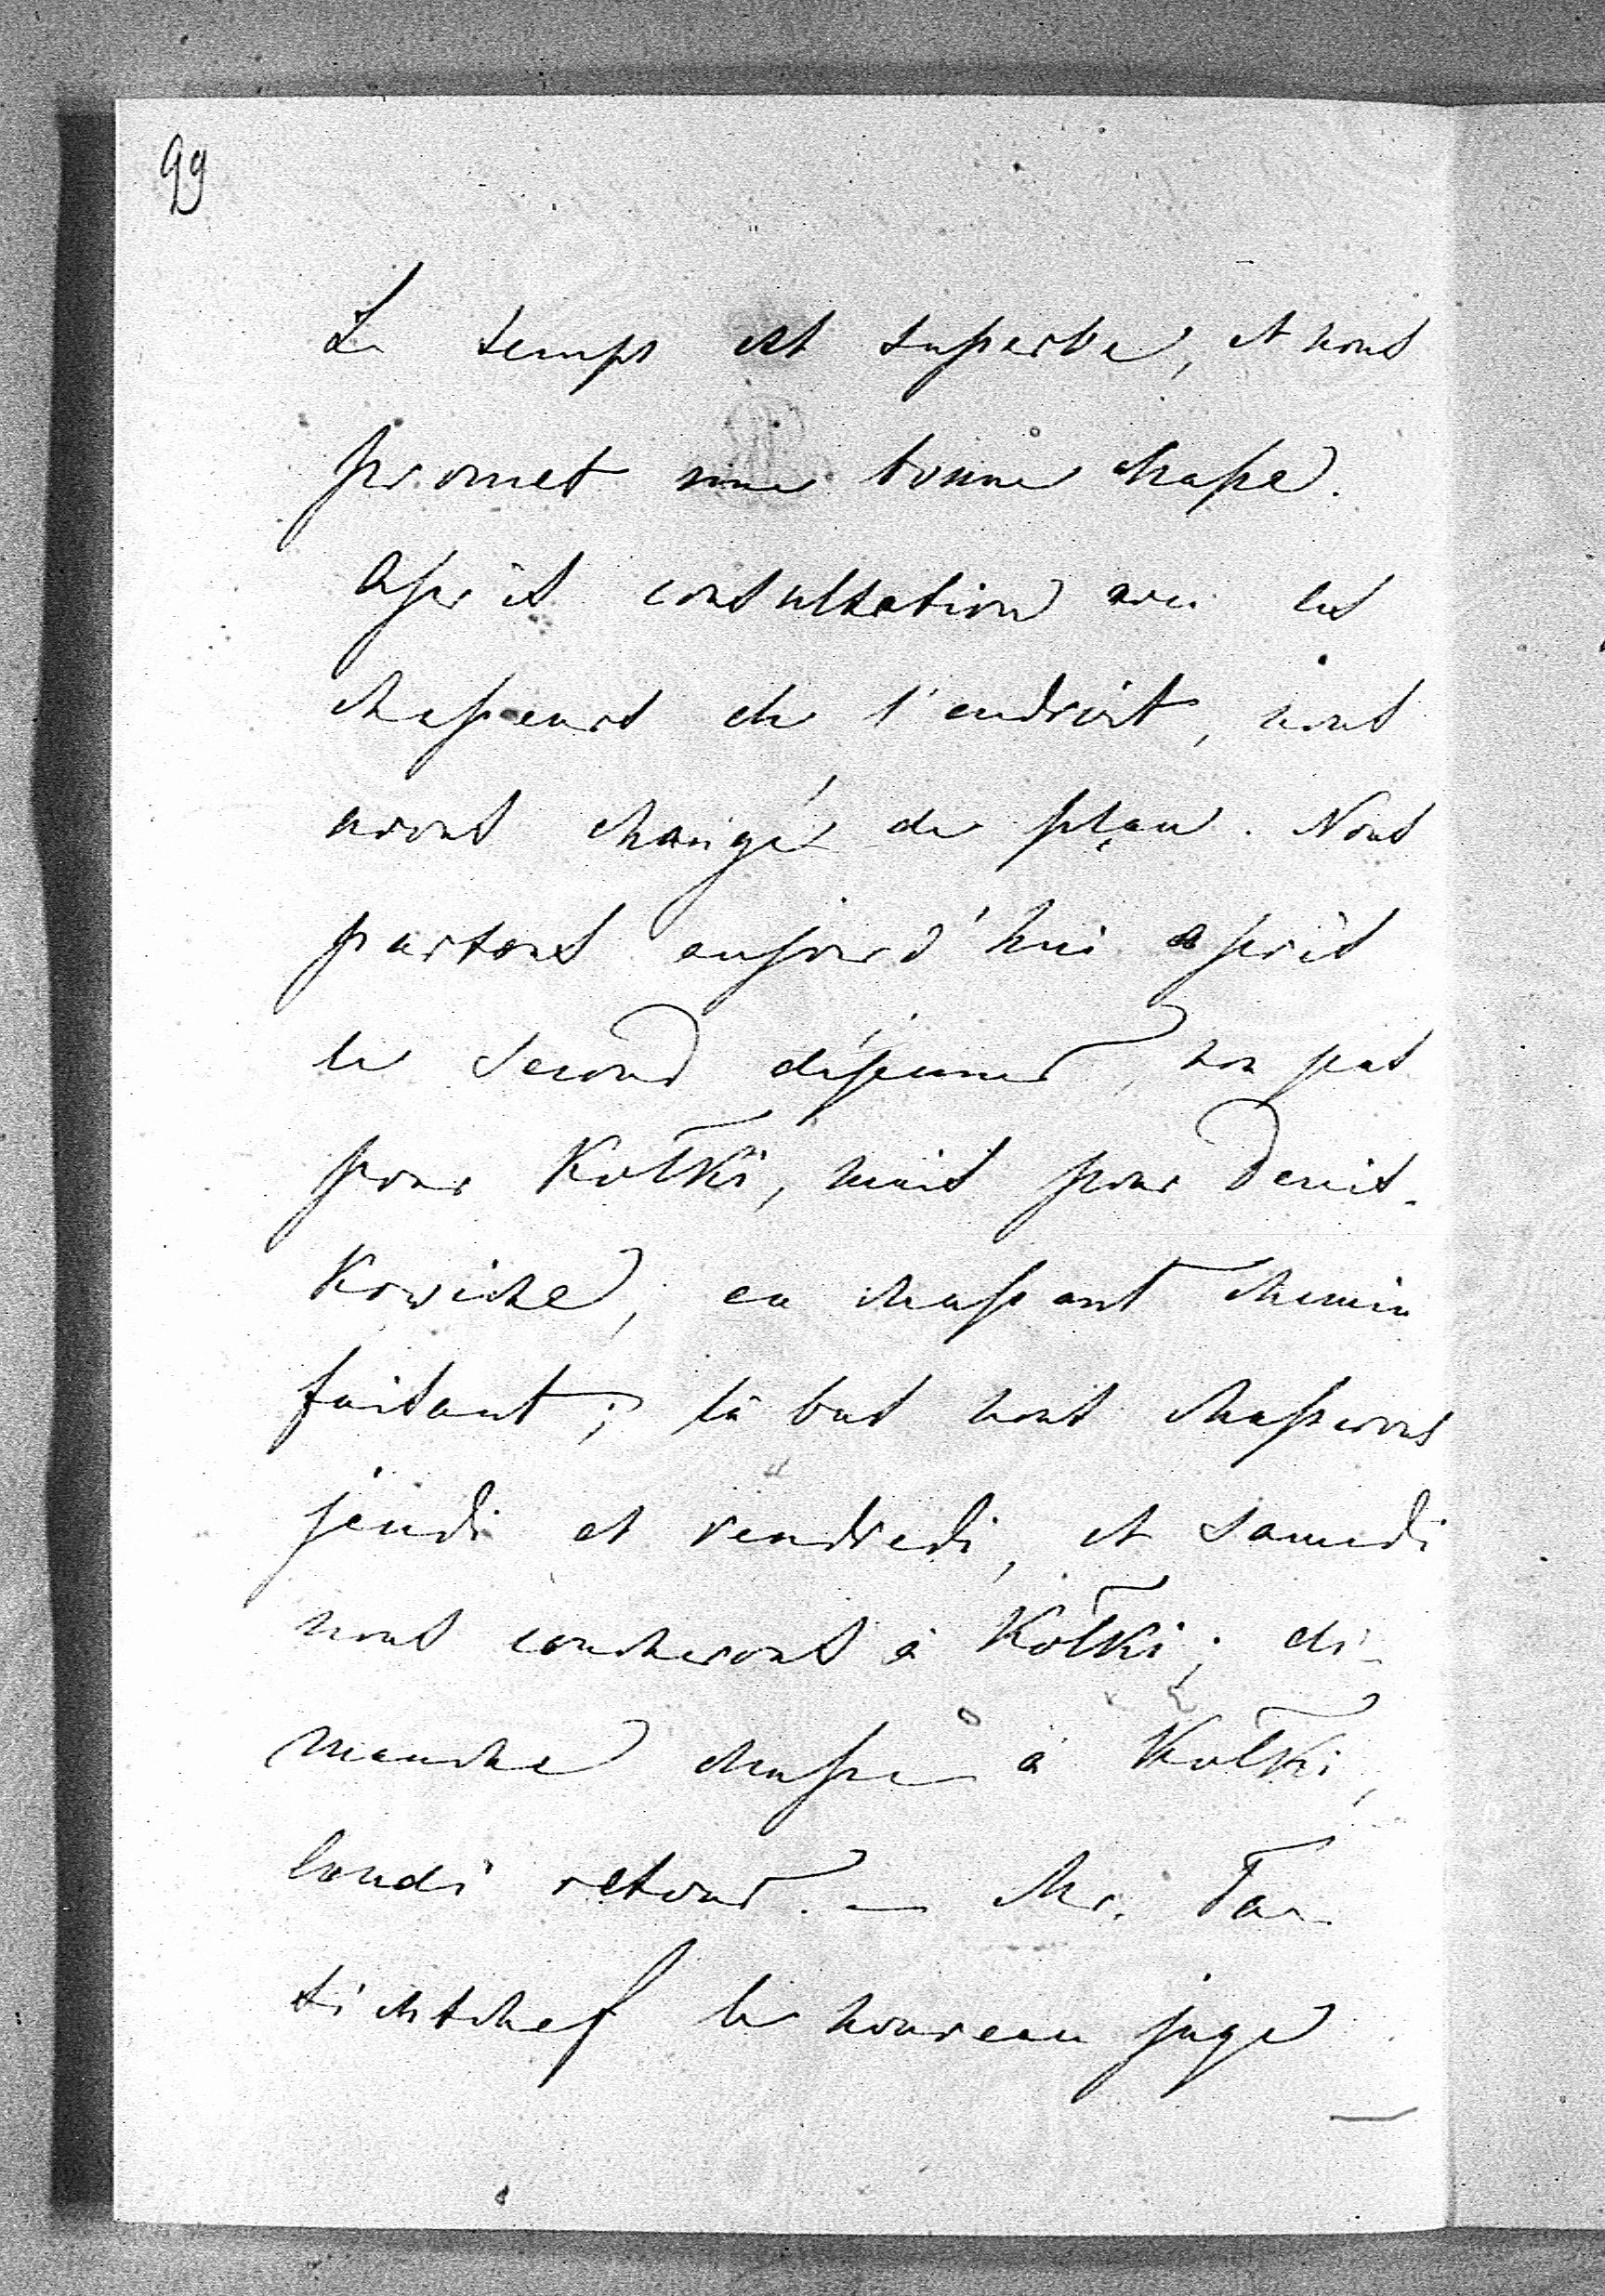 99
Le temps est superbe, et nous
promet une bonne chasse.
Après consultation avec les
chasseurs de l'endroit, nous
avons changé de plan. Nous
partons aujourd'hui après
le second déjeuner, non pas
pour Kolki, mais pour Denis-
Kowiche, en chassant chemin
faisant; là bas nous chasserons
jeudi et vendredi, et samedi
nous coucherons à Kolki; di-
manche chasse à Kolki,
lundi retour. — Mr. Ta-
tichtchef le nouveau juge